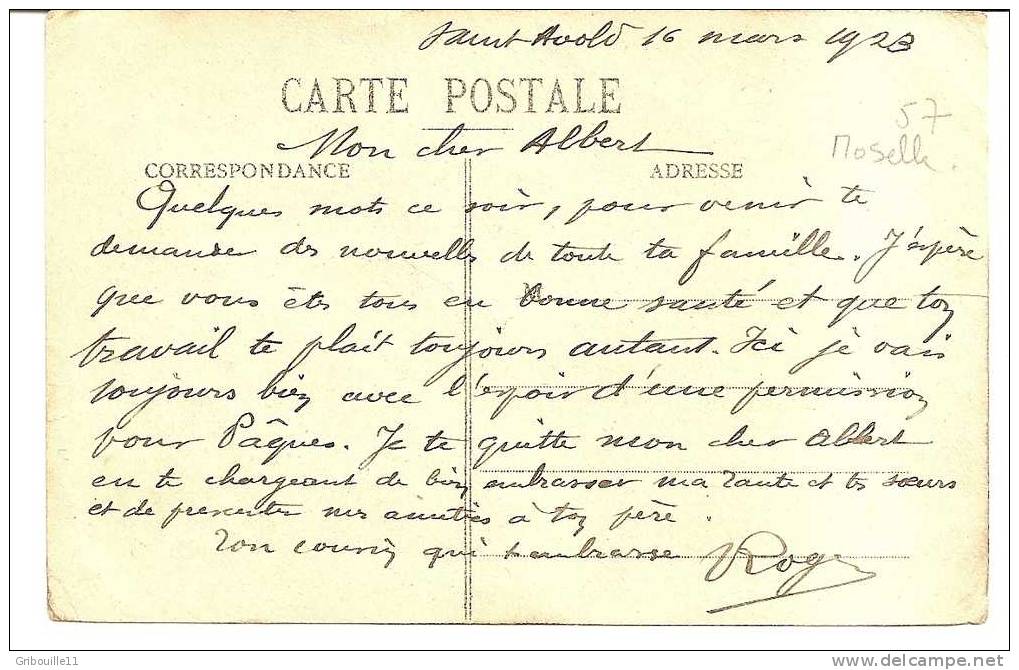 Saint Avold 16 mars 1923
CARTE POSTALE
57
Moselle.
Mon cher Albert
CORRESPONDANCE ADRESSE
Quelques mots ce soir, pour venir te
demander des nouvelles de toute ta famille. J'espère
que vous êtes tous en bonne santé et que ton
travail te plaît toujours autant. Ici je vais
toujours bien avec l'espoir d'une permission
pour Pâques. Je te quitte mon cher Albert
en te chargeant de bien embrasser ma Tante et tes sœurs
et de presenter mes amitiés à ton père.
Ton cousin qui t'embrasse Roger
Gribouille11
http://www.delcampe.net